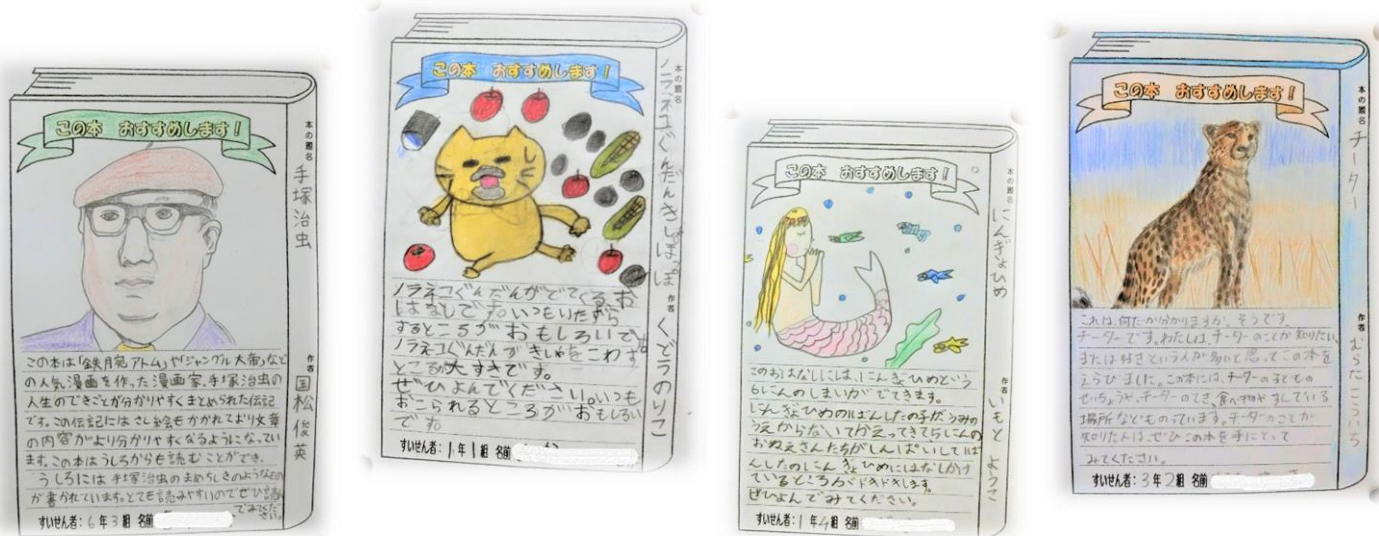 この本 おすすめします!
本の題名
手塚治虫
作者
国松俊英
この本は「鉄腕アトム」や「ジャングル大帝」など
の人気漫画を作った漫画家、手塚治虫の
人生のできごとが分かりやすくまとめられた伝記
です。この伝記にはさし絵もかかれており文章
の内容がより分かりやすくなるようになってい
ます。この本はうしろからも読むことができ、
うしろには手塚治虫のまめちしきのようなもの
が書かれています。とても読みやすいのでぜひ読ん
でみてくだ
さい。
すいせん者:6年3組 名前
この本 おすすめします!
本の題名
ノラネコぐんだんきしゃぽっぽ
作者
くどうのりこ
ノラネコぐんだんがでてくるお
はなしです。いつもいたずら
するところがおもしろいです。
ノラネコぐんだんがきしゃをこわす
ところが大すきです。
ぜひよんでください。いつも
おこられるところがおもしろい
です。
すいせん者:1年1組 名前
この本 おすすめします!
本の題名
にんぎょひめ
作者
いもとようこ
このおはなしには、にんぎょひめという
6にんのしまいがでてきます。
にんぎょひめの1ばんしたの子がうみの
うえからないてかえってきて5にんの
おねえさんたちがしんぱいして1ば
んしたのにんぎょひめにはなしかけ
ているところがドキドキします。
ぜひよんでみてください。
すいせん者:1年4組 名前
この本 おすすめします!
本の題名
チーター
作者
むらたこういち
これは、何だか分かりますか。そうです。
チーターです。わたしは、チーターのことが知りたい、
または好きという人が多いと思ってこの本を
えらびました。この本には、チーターの子どもの
せいちょうや、チーターのてき、食べ物やすんでいる
場所などものっています。チーターのことが
知りたい人は、ぜひこの本を手にとって
みてください。
すいせん者:3年2組 名前